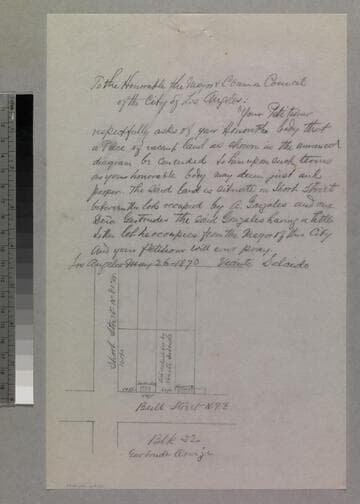 To the Honorable the Mayor & Comn Council
of the City of Los Angeles:
Your Petitioner
respectfully asks of your Honorable body that
a Piece of vacant land as shown in the annexed
diagram be conceded to him upon such terms
as your honorable body may deem just and
proper. The said land is situate on Short Street
between the lots occupied by A. Gonzales and one
Doña Gertrudes the said Gonzales having a title
to the lot he occupies from the Mayor of this City
And your Petitioner will ever pray.
Los Angeles May 26 1870 Vicente Salcido
Short Street
Bull Street
Blk 22
Gertrude